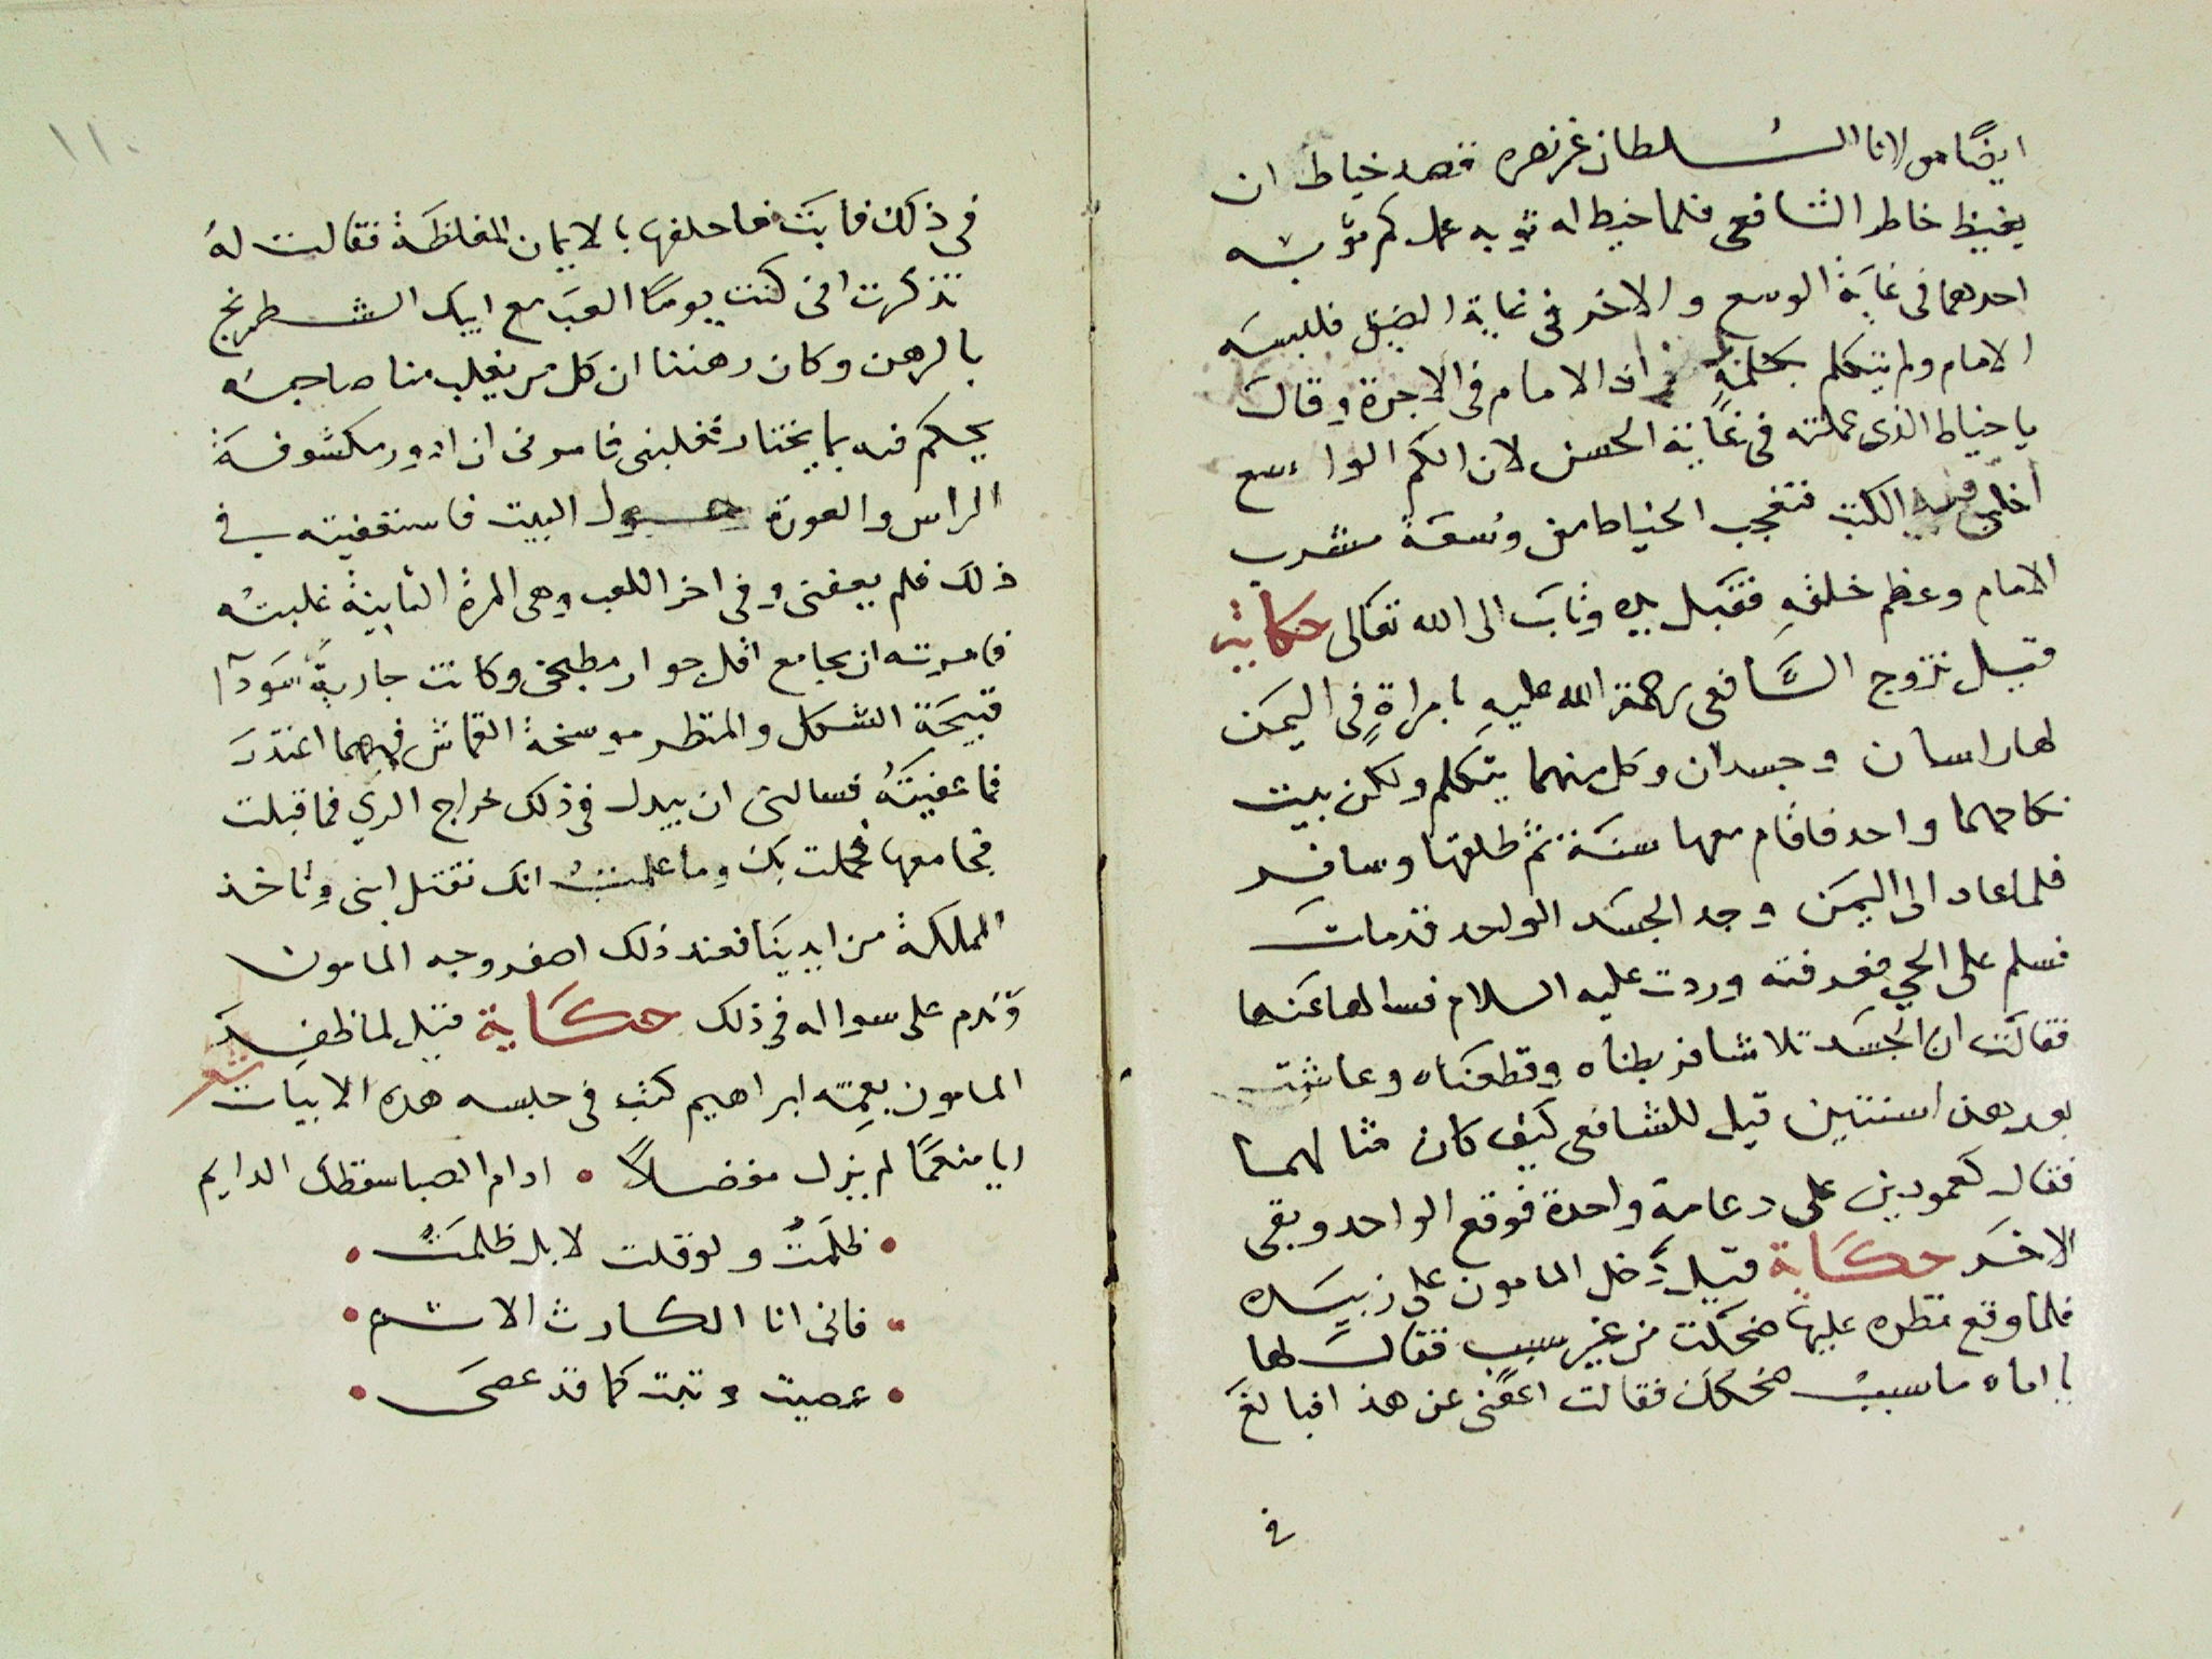 ايضًا مولانا السُلطان عز نصره قصد خياط ان
يغيظ خاطر الشافعى فلما خيط له ثوبه عمل كم ثوبه
احدهما فى غاية الوسع والاخر فى غاية الضيق فلبسه
الامام ولم يتكلم بكلمةٍ زاد الامام فى الاجرة وقال
يا خياط الذى عملته فى غاية الحسن لان الكم الواسع
اخلى فيه الكتب فتعجب الخياط من وُسعَة مشرب
الامام وعظم خلقهِ فقبل يده وتابَ الى الله تعَالى حكاية
قيل تزوج الشَّافعى رحمة الله عليهِ بامراةٍ فِى اليمَن
لها راسان وجسدان وكل منهما يتكلم ولكن بيت
نكاحهما واحد فاقام معها سنَة ثم طلقها وسافر
فلما عاد الى اليمَن وجد الجسَد الواحد قد ماتَ
فسلم على الحي فعرفته وردت عليه السلام فسالها عَنها
فقالَت ان الجسَد تلاشا فربطناه وقطعنَاه وعاشت
بعدهن اسنتين قيل للشافعى كيف كان مثالهما
فقال كعمودين على دعامة واحدة فوقع الواحد وبقى
الاخَر حكَاية قيل دَخل المامون على زبيَده
فلما وقع نظره عليها ضحكَت من غير سبب فقالَ لها
يا اماه ما سببُ ضحكك فقالت اعفنى عن هذ افبالغَ
فى
١١٠
فى ذلك فابَت فاحلفها بالايمان المغلظَة فقالت لهُ
تذكرت انى كنت يومًا العَب مع ابيك الشطرنج
بالرهن وكان رهننا ان كل من يغلب منا صاحبه
يحكم فيه بما يختار فغلبنى فامرنى ان ادور مكشوفة
الراس والعورة حول البيت فاستعفيته فى
ذلك فلم يعفنى وفى اخر اللعب وهى المرة الثانية غلبتُه
فامرته ان يجامع اقل جوار مطبخى وكانت جاريةً سَودآ
قبيحَة الشكل والمنظر موسخة القماش فمهما اعتذرَ
فما عفيتَهُ فسالنى ان يبدل فى ذلك خراج الري فما قبلت
فجامعها فحملت بك وما علمتُ انك تقتل ابنى وتاخذ
المملكة من ايدينَا فعند ذلك اصفر وجه المامون
وَندم على سواله فى ذلك حكَاية قيل لما ظفِرَ
المامون بعمِّه ابراهيم كتب فى حبسه هذه الابيات شعر
ايا منعمًا لم يزل مفضلاً • ادام الصبا سقطك الدايم
• ظلَمتُ ولو قلت لا بل ظلمَتُ •
• فانى انا الكارث الاثم •
• عصيت وتبت كما قد عصَى •